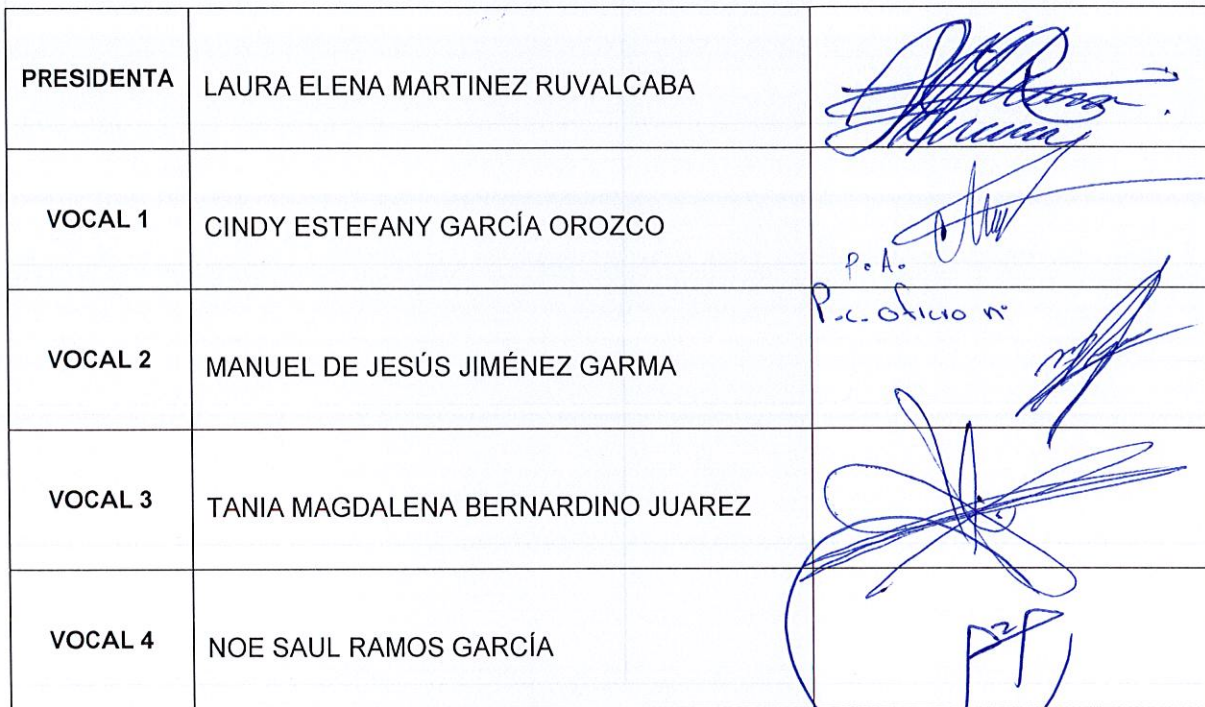 PRESIDENTA LAURA ELENA MARTINEZ RUVALCABA
VOCAL 1 CINDY ESTEFANY GARCÍA OROZCO
P.A.
P.c. oficio n°
VOCAL 2 MANUEL DE JESÚS JIMÉNEZ GARMA
VOCAL 3 TANIA MAGDALENA BERNARDINO JUAREZ
VOCAL 4 NOE SAUL RAMOS GARCÍA